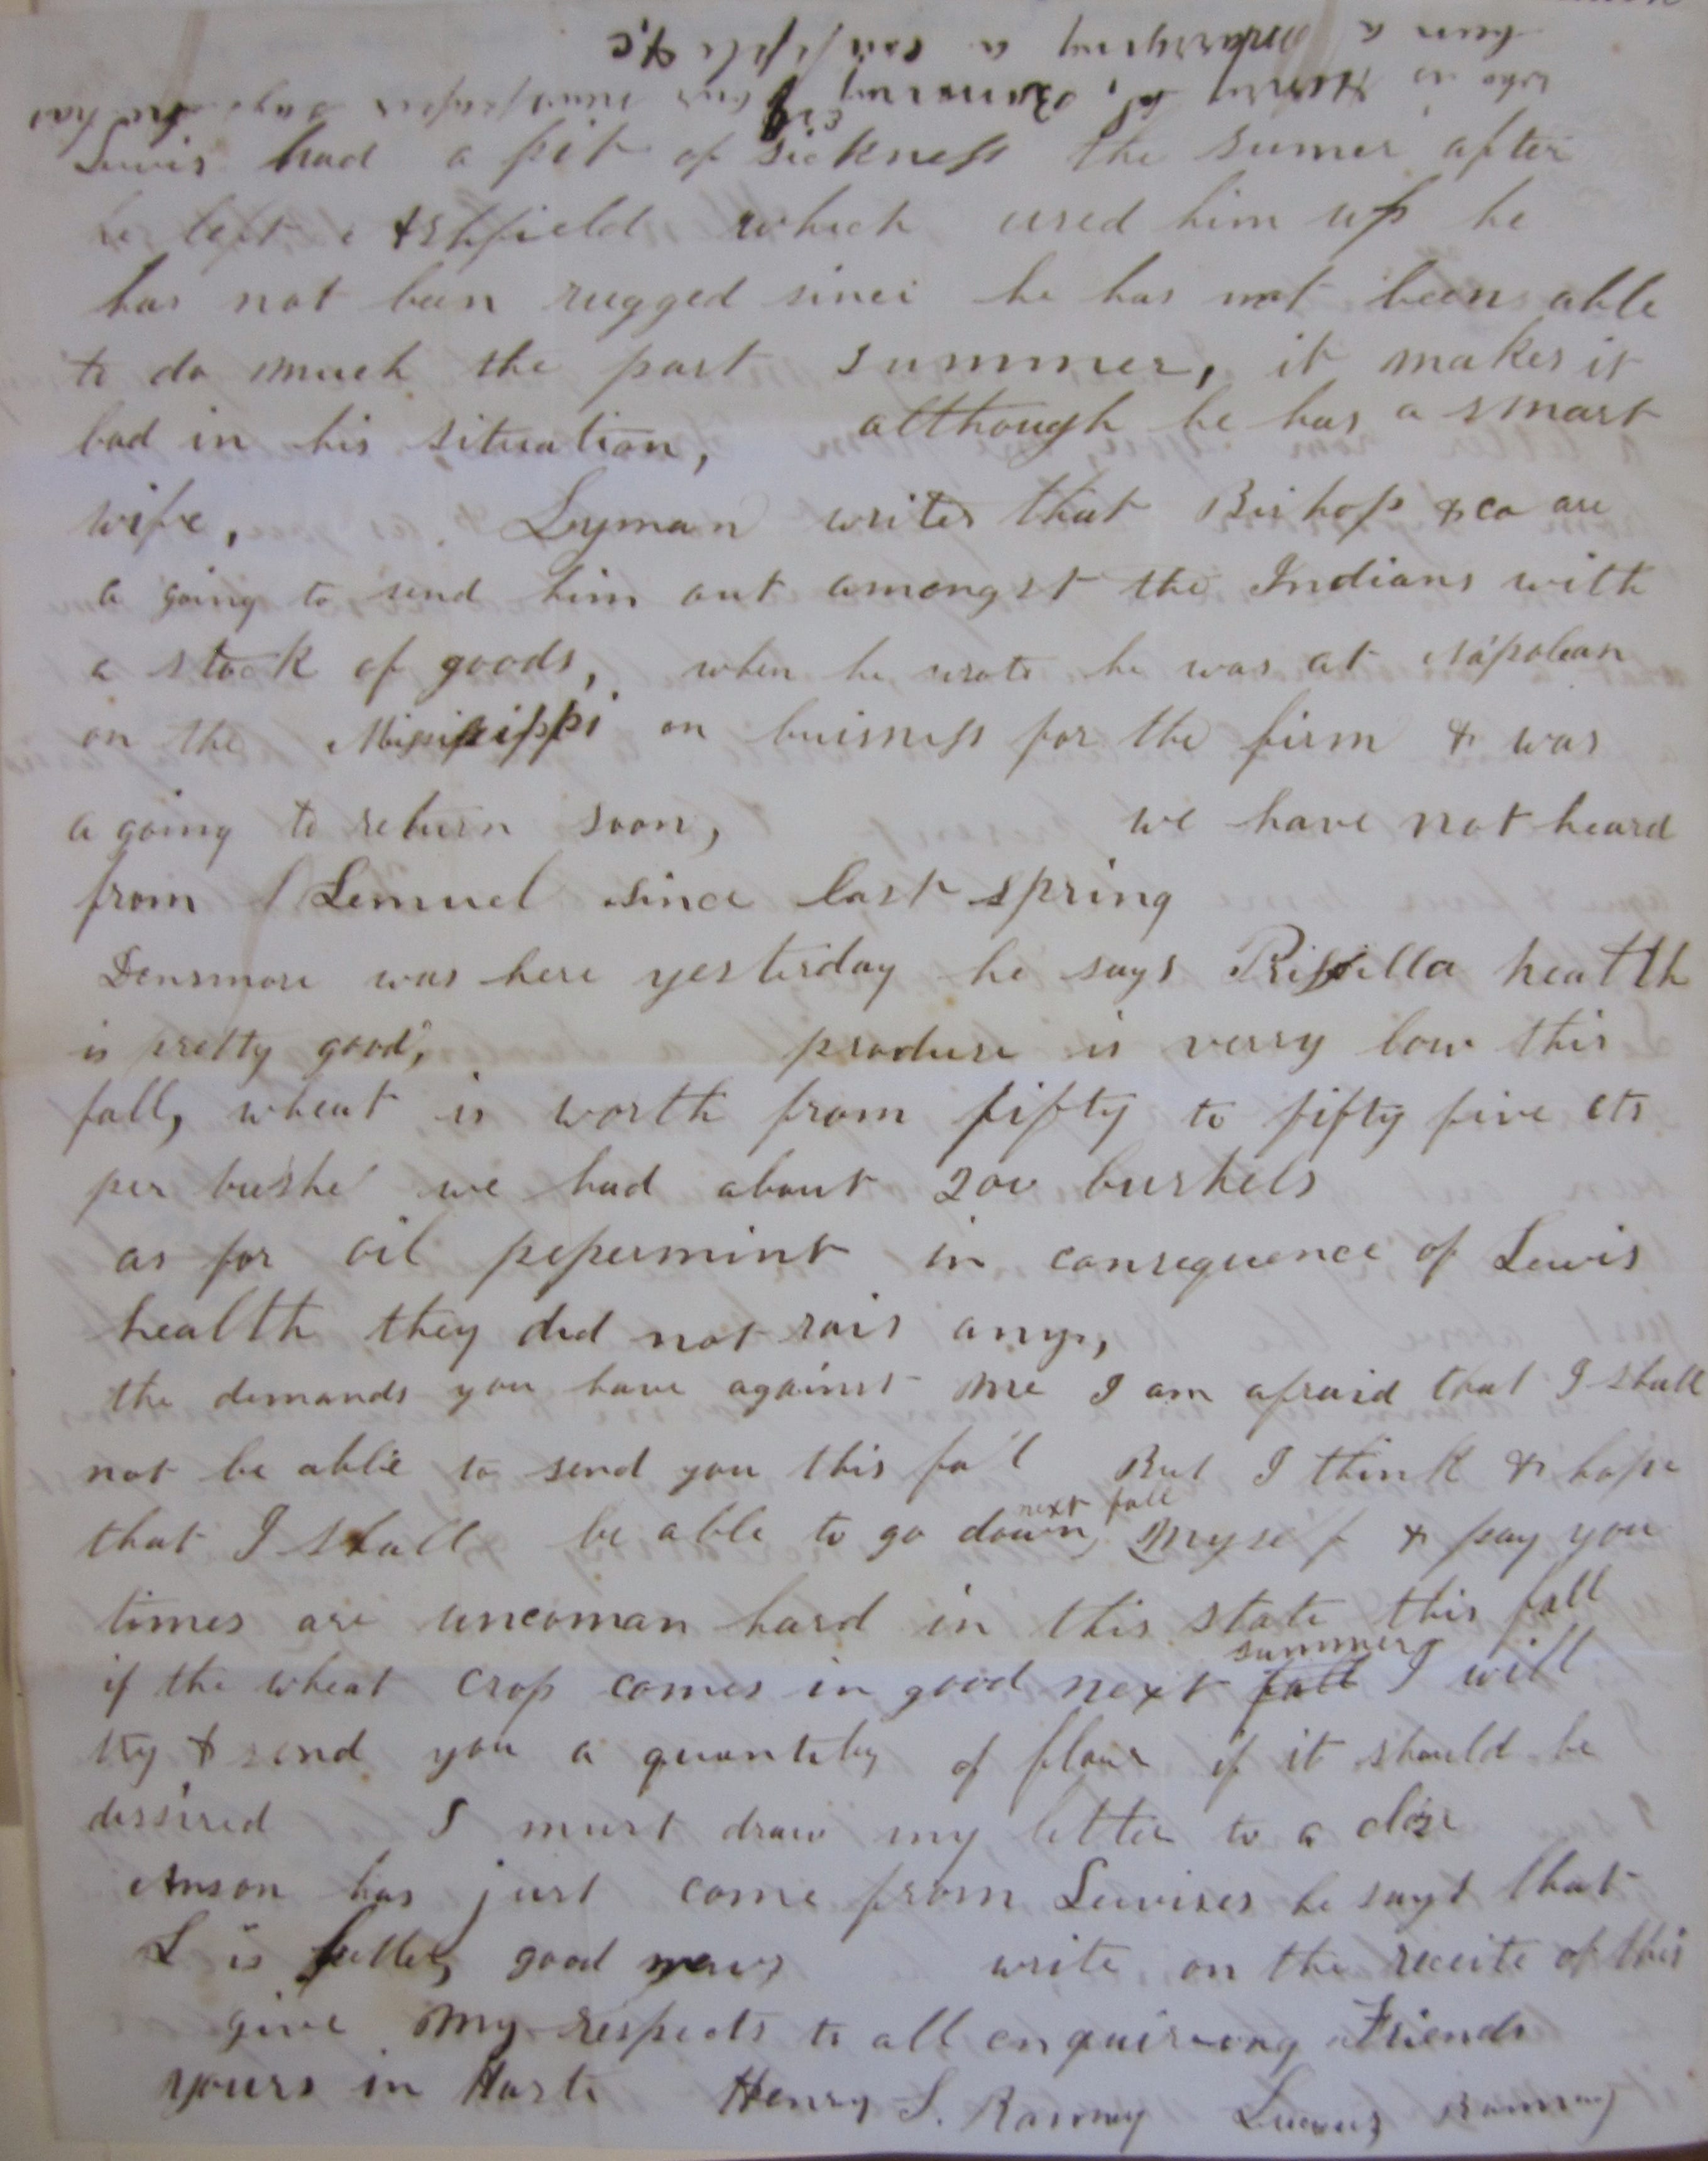 who is Henry Ranney our newspaper says he has
been a marrying a couple &c
Lewis had a fit of sickness the sumer after
he left Ashfield which used him up he
has not ben rugged since he has not been able
to do much the past summer, it makes it
bad in his situation, although he has a smart
wife, Lyman writes that Bishop & co are
a going to send him out amongst the Indians with
a stock of goods, when he wrote he was at Napolean
on the Missisippi on buisness for the firm & was
a going to return soon, we have not heard
from Lemuel since last spring
Densmore was here yesterday he says Prisilla health
is pretty good, produse is verry low this
fall, wheat is worth from fifty to fifty five cts
per bushel we had about 200 bushels
as for oil pepermint in consequence of Lewis
health they did not rais any,
the demands you have against me I am afraid that I shall
not be able to send you this fall But I think & hope
that I shall be able to go down next fall myself & pay you
times are uncoman hard in this state this fall
if the wheat crop comes in good next fall summer I will
try & send you a quantity of flour if it should be
dessired I must draw my letter to a close
Anson has just come from Lewises he says that
L is better, good news write on the receite of this
give my respects to all enquireing Friends
yours in Haste Henry S. Ranney Lucius Ranney